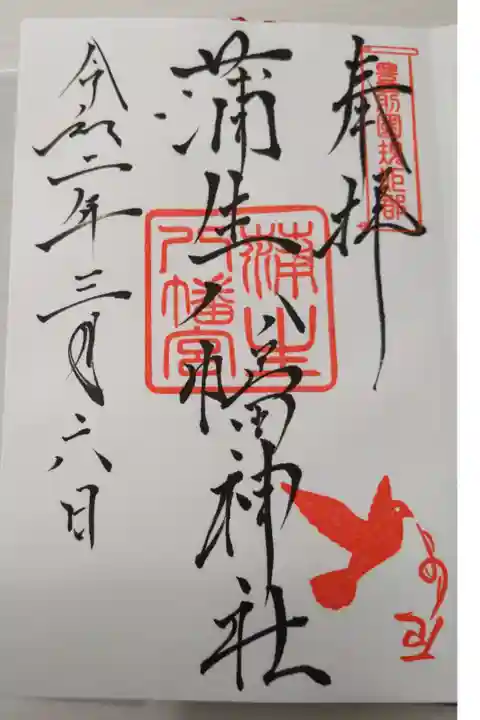 豊前國規矩郡
奉拝
蒲生八幡神社
蒲生八幡宮
令和二年三月六日